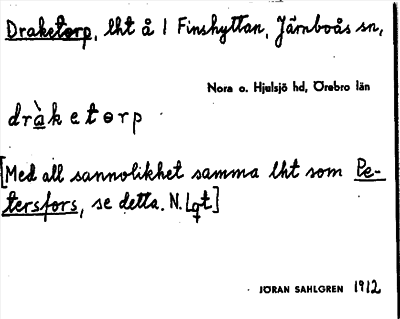 Draketorp, lht å 1 Finshyttan, Järnboås sn,
Nora o. Hjulsjö hd, Örebro län
dràketɵrp
[Med all sannolikhet samma lht som Pe-
tersfors, se detta. N. Lqt]
JÖRAN SAHLGREN 1912